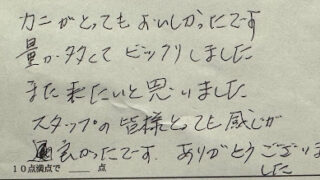 カニがとってもおいしかったです
量が多くてビックリしました
また来たいと思いました
スタッフの皆様とっても感じが
良かったです. ありがとうございま
した
10点満点で 点